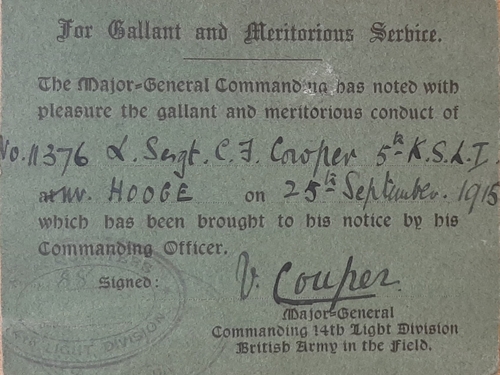 For Gallant and Meritorious Service.
The Major-General Commanding has noted with
pleasure the gallant and meritorious conduct of
No. 11376 L. Sergt. C. F. Cowper 5th K.S.L.I
at nr. HOOGE on 25th September. 1915
which has been brought to his notice by his
Commanding Officer.
Signed: V. Couper.
Major-General
Commanding 14th Light Division
British Army in the Field.
LIGHT DIVISION